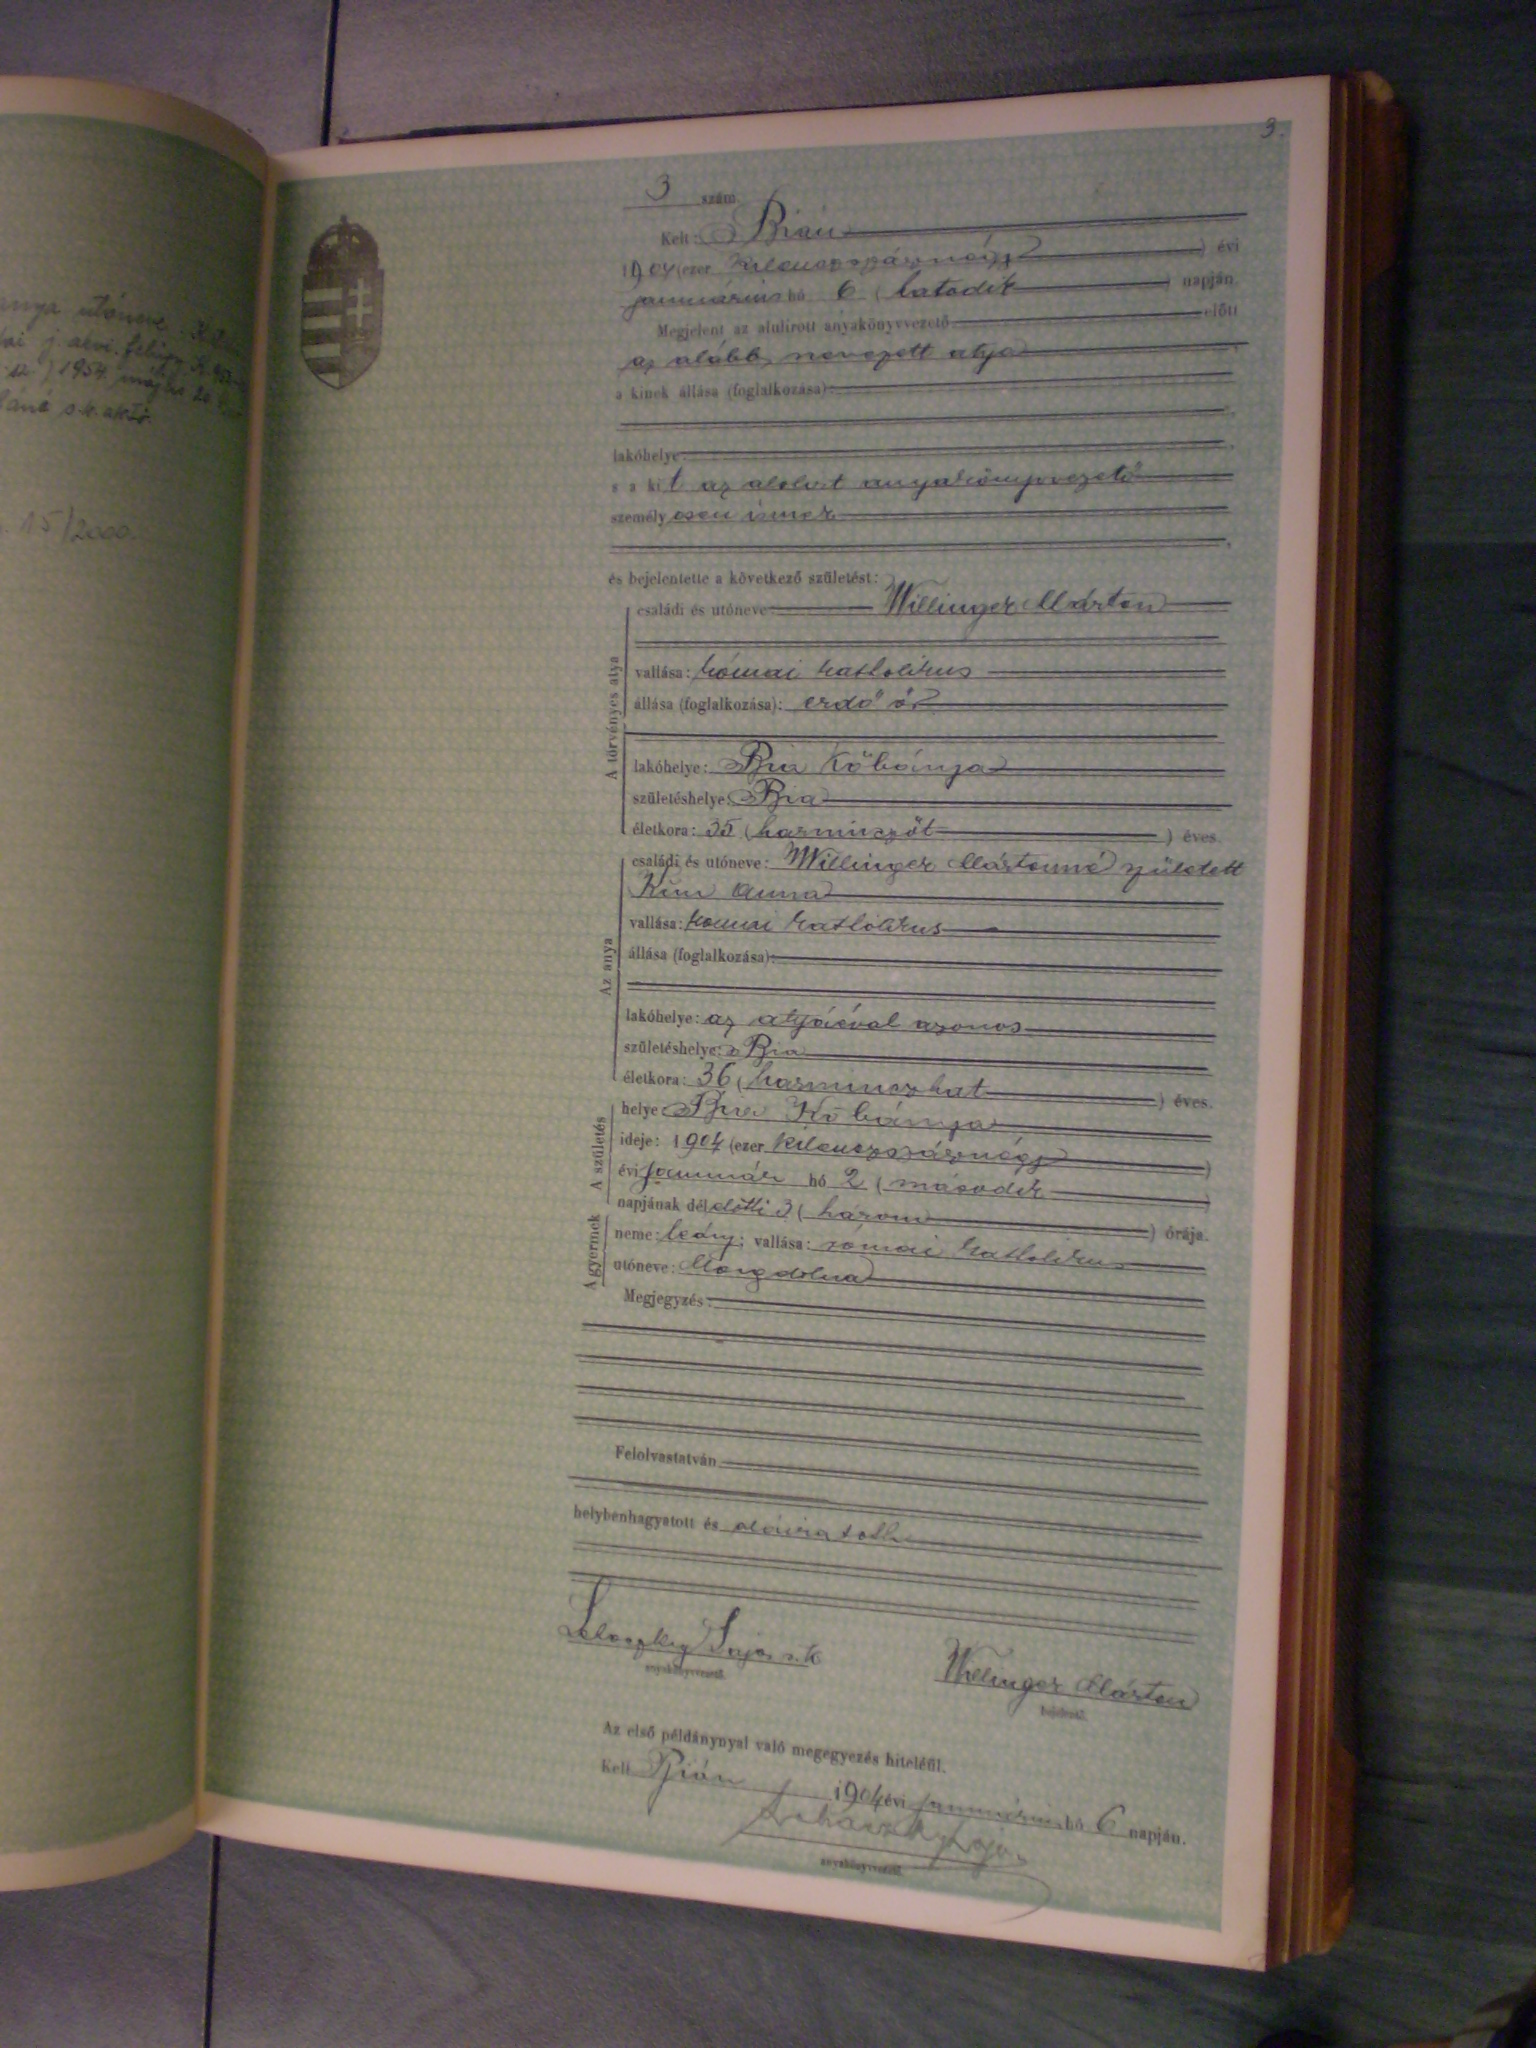 anya utóneve
1954. május 20
15/2000.
3.
3 szám
Kelt: Bián
1904 (ezer kilenczszáznégy ) évi
januárius hó 6 ( hatodik ) napján.
Megjelent az alulirott anyakönyvvezető előtt
az alább nevezett atya
a kinek állása (foglalkozása):
lakóhelye:
s a ki t az alolirt anyakönyvvezető
személy esen ismer
és bejelentette a következő születést:
A törvényes atya
családi és utóneve: Willinger Márton
vallása: római katholikus
állása (foglalkozása): erdő őr
lakóhelye: Bia Kőbánya
születéshelye: Bia
életkora: 35 ( harminczöt ) éves.
Az anya
családi és utóneve: Willinger Mártonné született
Anna
vallása: római katholikus
állása (foglalkozása):
lakóhelye: az atyáéval azonos
születéshelye: Bia
életkora: 36 ( harminczhat ) éves.
A születés
helye: Bia Kőbánya
ideje: 1904 (ezer kilenczszáznégy )
évi január hó 2 ( második )
napjának dél előtti 3 ( három ) órája.
A gyermek
neme: leány; vallása: római katholikus
utóneve: Magdolna
Megjegyzés:
Felolvastatván
helybenhagyatott és aláiratott
Lajos s. k.
anyakönyvvezető.
Willinger Márton
bejelentő.
Az első példánynyal való megegyezés hiteléül.
Kelt Bián 1904 évi januárius hó 6 napján.
Lajos
anyakönyvvezető.